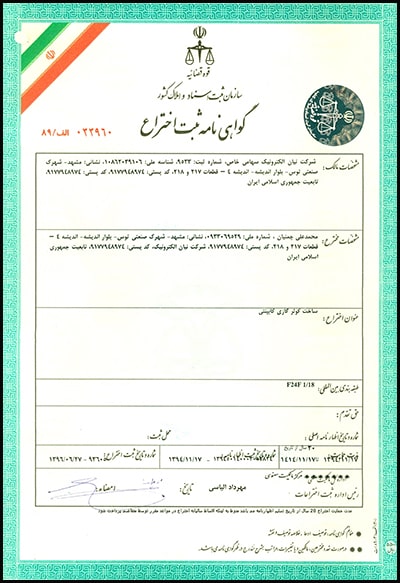 قوه قضائیه
سازمان ثبت اسناد و املاک کشور
گواهی نامه ثبت اختراع
۸۹/الف ۰۳۳۹۶۰
مشخصات مالک:
شرکت نیان الکترونیک سهامی خاص، شماره ثبت: ۹۵۳۳، شناسه ملی: ۱۰۸۶۲۰۳۹۱۰۶، نشانی: مشهد- شهرک
صنعتی توس- بلوار اندیشه- اندیشه ۴ – قطعات ۲۱۷ و ۲۱۸، کد پستی: ۹۱۷۷۹۴۸۹۷۴، کد پستی: ۹۱۷۷۹۴۸۹۷۴،
تابعیت جمهوری اسلامی ایران
مشخصات مخترع:
محمدعلی چمنیان ، شماره ملی: ۰۹۳۳۰۶۹۵۲۹، نشانی: مشهد- شهرک صنعتی توس- بلوار اندیشه- اندیشه ۴ –
قطعات ۲۱۷ و ۲۱۸، کد پستی: ۹۱۷۷۹۴۸۹۷۴، شرکت نیان الکترونیک، کد پستی: ۹۱۷۷۹۴۸۹۷۴، تابعیت جمهوری
اسلامی ایران
عنوان اختراع:
ساخت کولر گازی کابینتی
طبقه بندی بین المللی:
F24F 1/18
حق تقدم:
شماره و تاریخ اظهارنامه اصلی:
محل ثبت:
۲۰ سال / تاریخ
۱۴۱۴/۱۱/۱۷
۱۳۹۴/۱۱/۱۷
شماره و تاریخ ثبت اختراع:
۹۳۶۰ - ۱۳۹۶/۰۶/۲۷
مرکز مالکیت معنوی
رئیس اداره ثبت اختراعات
مهرداد الیاسی
تاریخ:
امضاء:
مدت حمایت اختراع ۲۰ سال از تاریخ تسلیم اظهارنامه می باشد منوط به اینکه اقساط سالیانه اختراع در مواعد مقرر توسط متقاضی پرداخت شود.